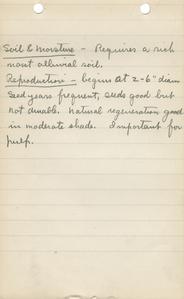 Soil & moisture - Requires a rich
moist alluvial soil.
Reproduction - begins at 2-6" diam
Seed years frequent, seeds good but
not durable. Natural regeneration good
in moderate shade. Important for
pulp.